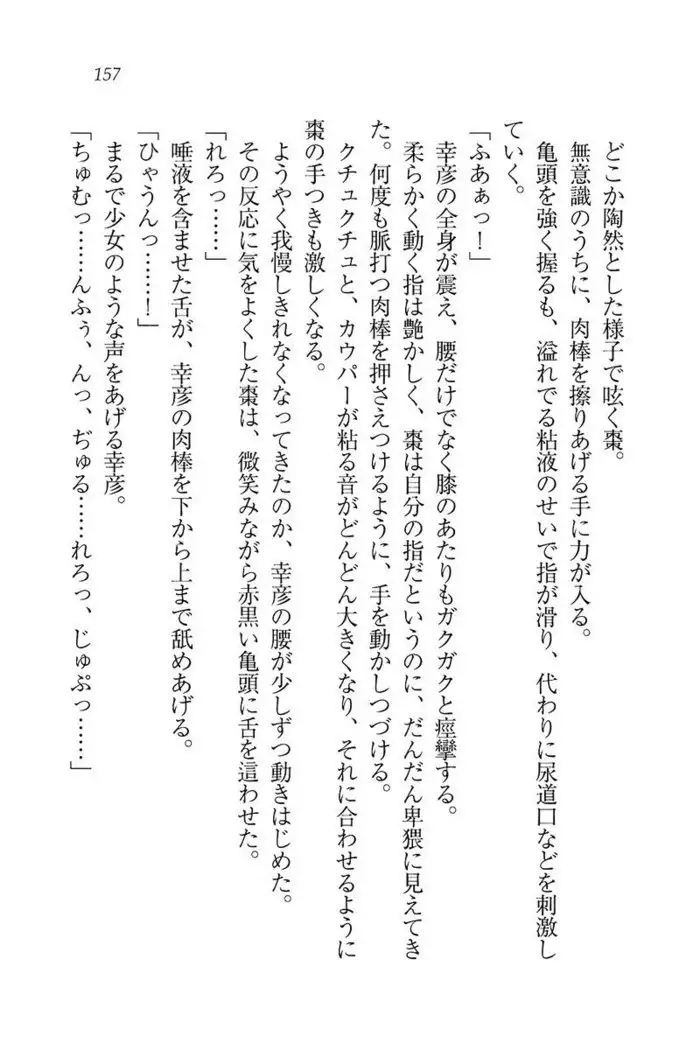 157
どこか陶然とした様子で呟く棗。
無意識のうちに、肉棒を擦りあげる手に力が入る。
亀頭を強く握るも、溢れでる粘液のせいで指が滑り、代わりに尿道口などを刺激し
ていく。
「ふあぁっ！」
幸彦の全身が震え、腰だけでなく膝のあたりもガクガクと痙攣する。
柔らかく動く指は艶かしく、棗は自分の指だというのに、だんだん卑猥に見えてき
た。何度も脈打つ肉棒を押さえつけるように、手を動かしつづける。
クチュクチュと、カウパーが粘る音がどんどん大きくなり、それに合わせるように
棗の手つきも激しくなる。
ようやく我慢しきれなくなってきたのか、幸彦の腰が少しずつ動きはじめた。
その反応に気をよくした棗は、微笑みながら赤黒い亀頭に舌を這わせた。
「れろっ……」
唾液を含ませた舌が、幸彦の肉棒を下から上まで舐めあげる。
「ひゃうんっ……！」
まるで少女のような声をあげる幸彦。
「ちゅむっ……んふぅ、んっ、ぢゅる……れろっ、じゅぷっ……」